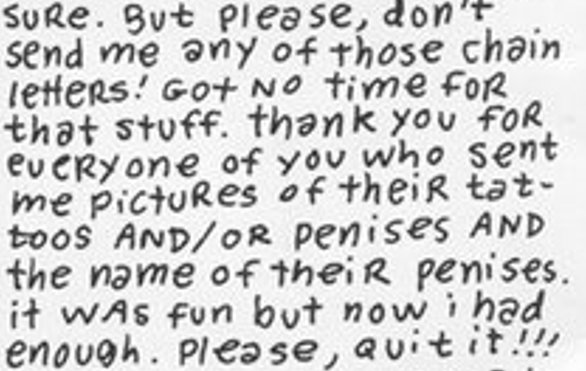 SURE. But please, don't
send me any of those chain
letters! Got NO time foR
that stuff. thank you foR
eveRyone of you who sent
me pictuRes of theiR tat-
toos AND/oR penises AND
the name of theiR penises.
it WAs fun but now i had
enough. Please, quit it!!!